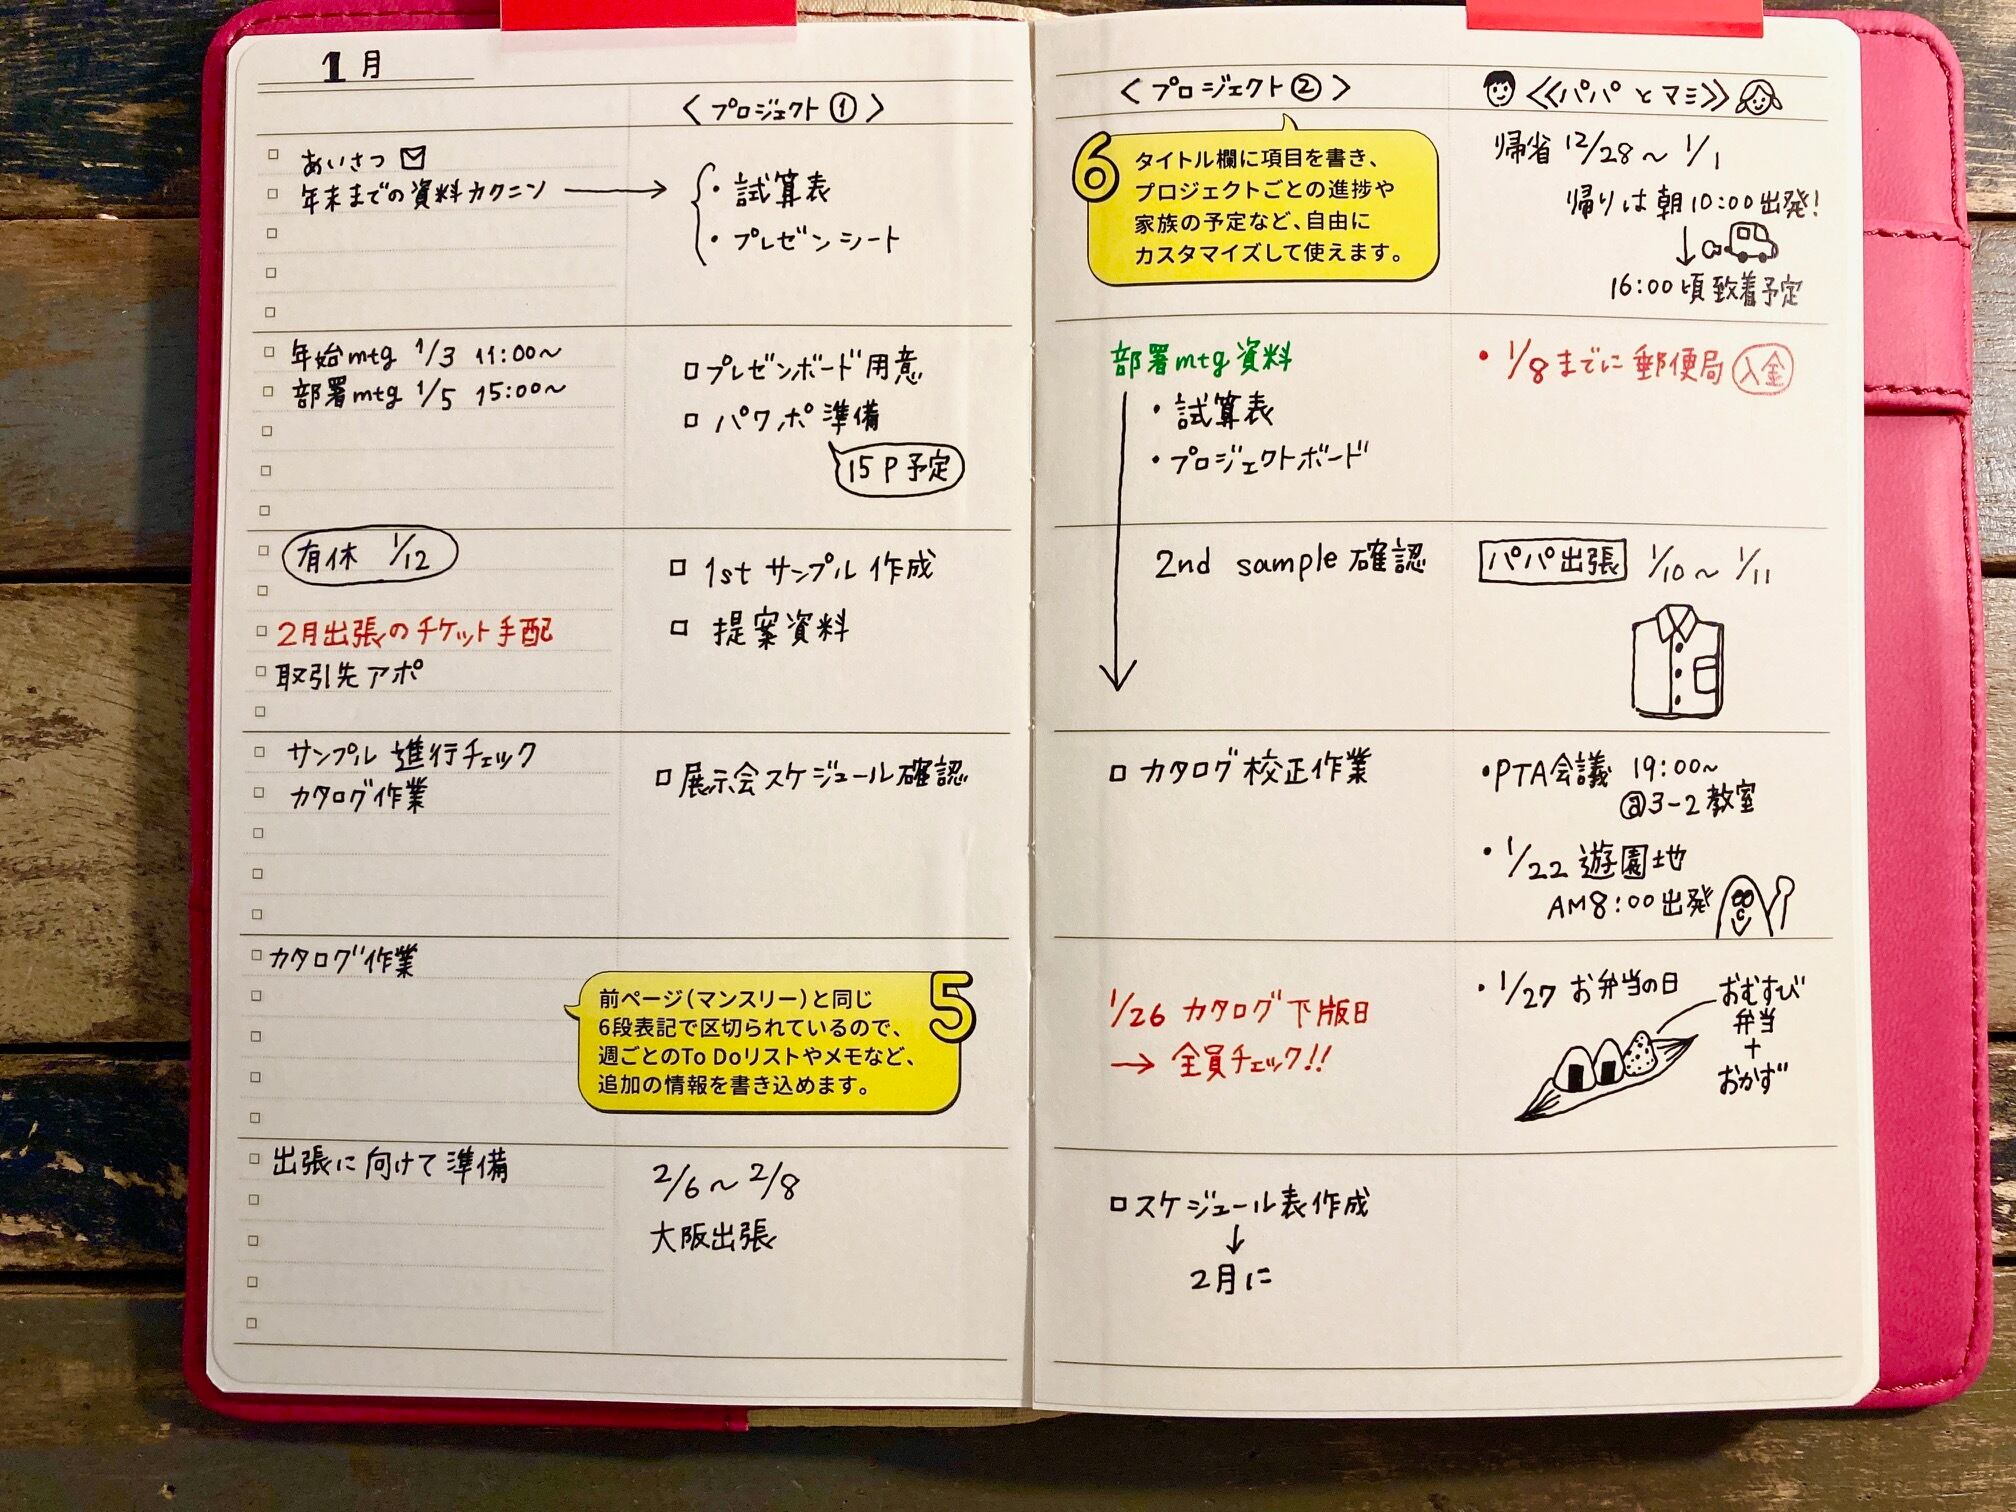 1月
<プロジェクト①>
あいさつ
年末までの資料カクニン →
・試算表
・プレゼンシート
年始mtg 1/3 11:00~
部署mtg 1/5 15:00~
□プレゼンボード用意
□ パワポ準備
15P予定
有休 1/12
2月出張のチケット手配
取引先アポ
□ 1stサンプル作成
□ 提案資料
サンプル進行チェック
カタログ作業
□展示会スケジュール確認
カタログ作業
5
前ページ(マンスリー)と同じ
6段表記で区切られているので、
週ごとのTo Doリストやメモなど、
追加の情報を書き込めます。
出張に向けて準備
2/6~2/8
大阪出張
<プロジェクト②>
≪パパとマミ≫
6
タイトル欄に項目を書き、
プロジェクトごとの進捗や
家族の予定など、自由に
カスタマイズして使えます。
帰省 12/28~1/1
帰りは朝10:00出発!
↓
16:00頃到着予定
部署mtg資料
・試算表
・プロジェクトボード
・1/8までに郵便局 入金
2nd sample確認
パパ出張 1/10~1/11
□ カタログ校正作業
・PTA会議 19:00~
@3-2教室
・1/22 遊園地
AM8:00出発
1/26 カタログ下版日
→ 全員チェック!!
・1/27 お弁当の日
おむすび
弁当
+
おかず
□スケジュール表作成
↓
2月に